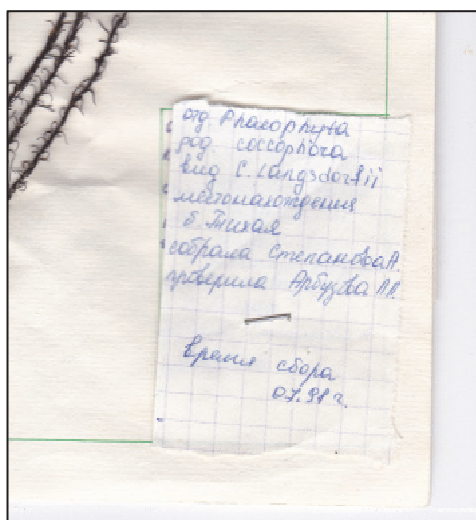 отд. Phaeophyta
род coccophora
вид C. Langsdorfii
местонахождения
б. Тихая
собрала Степанова А.
проверила Арбузова Л.Л.
время сбора
07.91 г.